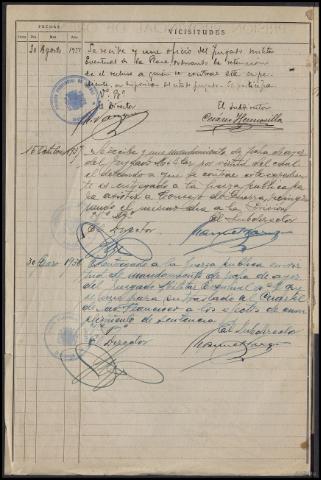 FECHAS
VICISITUDES
Día Mes Año
20 Agosto 1937
Se recibe y une oficio del Juzgado Militar
Eventual de la Plaza, interesando la retención
de el recluso a quien se contrae este expe-
diente, a disposición de dicho Juzgado. Se participa
Vº Bº
El Director
El Subdirector
15 Octubre 1937
Se recibe y une mandamiento de
del Juzgado Militar por virtud del cual
el detenido a que se contrae este expedien-
te es entregado a la fuerza pública pa-
ra asistir a Consejo de Guerra, reingre-
sando el mismo día a la Prisión
Vº Bº
El Subdirector
El Director
30 Enero 1938
Entregado a la fuerza pública en vir-
tud de mandamiento de
del Juzgado Militar Eventual nº
para su traslado al Cuartel
de San Francisco a los efectos de cum-
plimiento de sentencia
El Subdirector
Vº Bº
El Director